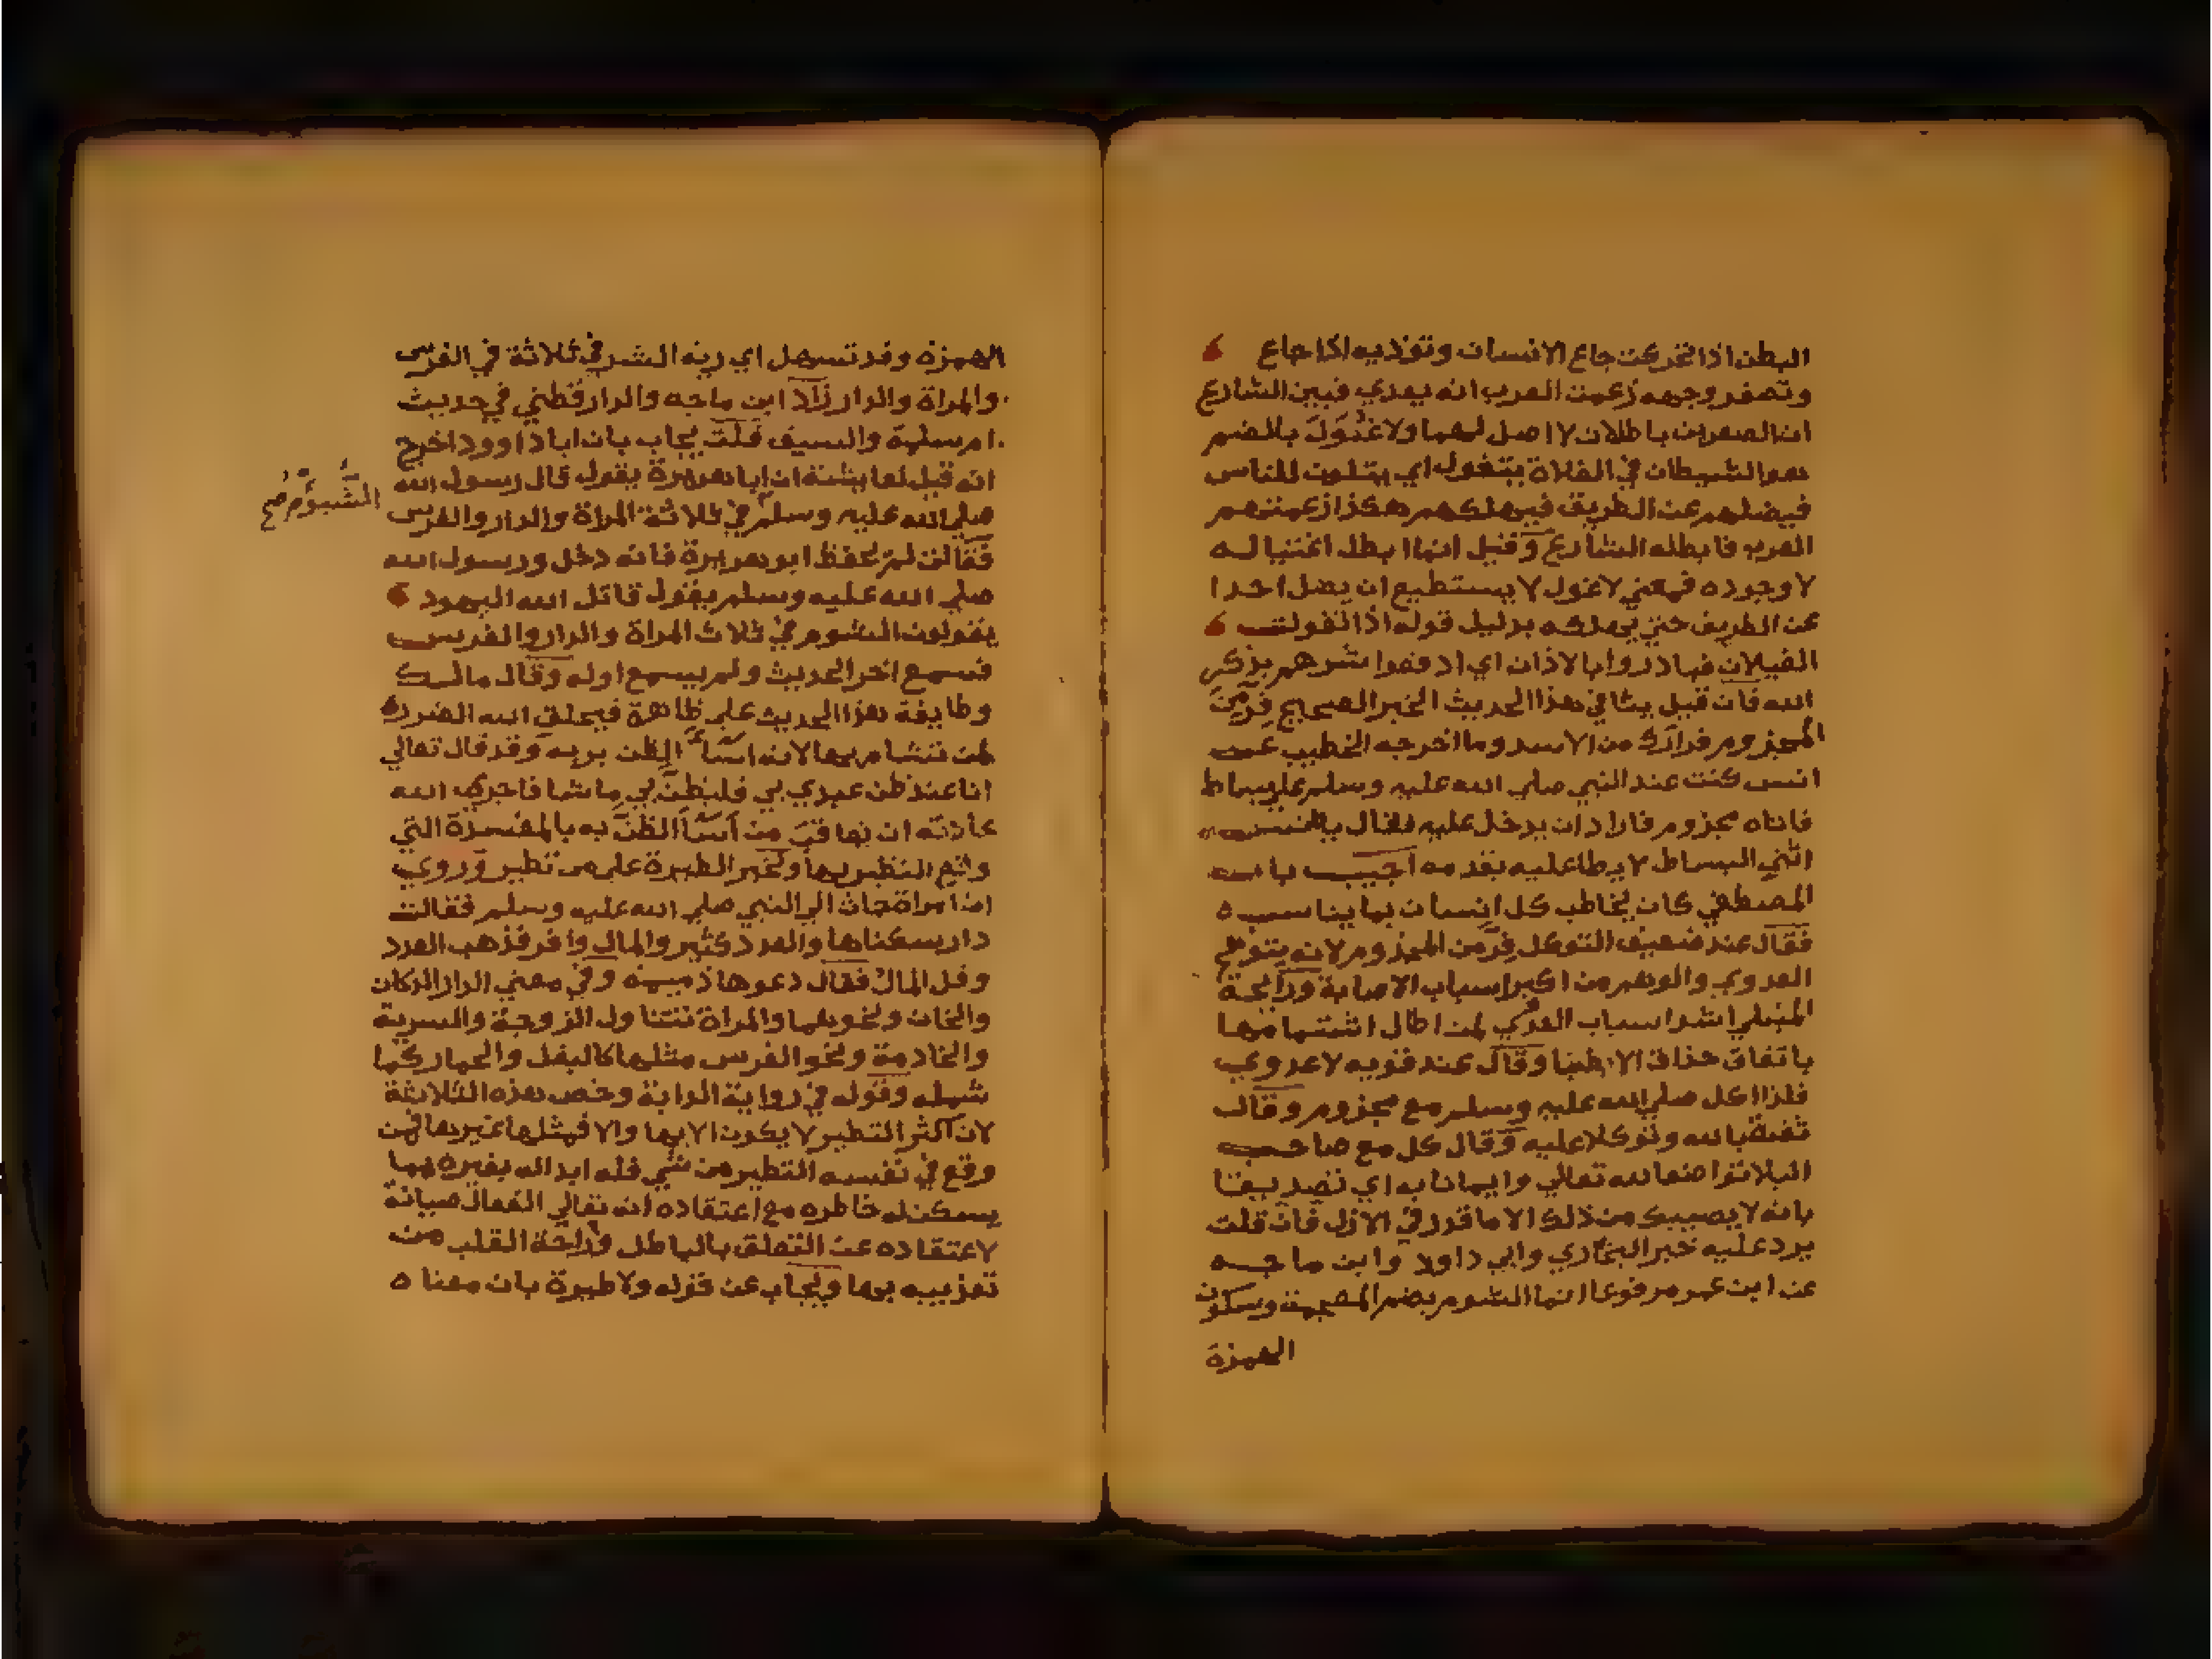 البطن اذا تحركت جاع الانسان وتوذيه اذا جاع
وتصفر وجهه زعمت العرب انه يعدي فبين الشارع
ان الصفرين باطلان لا اصل لهما ولا غُوَل بالضم
هو الشيطان في الفلاة يتغول اي يتلون للناس
فيضلهم عن الطريق فيهلكهم هكذا زعمتهم
العرب فابطله الشارع وقيل انما ابطل اغتياله
لا وجوده فمعني لا غول لا يستطيع ان يضل احدا
عن الطريق حتي يهلكه بدليل قوله اذا تغولت
الغيلان فبادروا بالاذان اي ادفعوا شرهم بذكر
الله فان قيل ينافي هذا الحديث الخبر الصحيح فر من
المجذوم فرارك من الاسد وما اخرجه الخطيب عن
انس كنت عند النبي صلي الله عليه وسلم علي بساط
فاتاه مجذوم فاراد ان يدخل عليه فقال يا انس
اثني البساط لا يطا عليه بقدمه اجيب بان
المصطفي كان يخاطب كل انسان بما يناسبه
فقال عند ضعيف التوكل فر من المجذوم لانه يتوهم
العدوي والوهم من اكبر اسباب الاصابة ورايحة
المبتلي اشد اسباب العدوي لمن اطال اشتمامها
باتفاق حذاق الاطبا وقال عند قويه لا عدوي
فلذا اكل صلي الله عليه وسلم مع مجذوم وقال
ثقة بالله وتوكلا عليه وقال كل مع صاحب
البلا تواضعا لله تعالي وايمانا به اي تصديقا
بانه لا يصيبك من ذلك الا ما قدر في الازل فان قلت
يرد عليه خبر البخاري وابي داود وابن ماجه
عن ابن عمر مرفوعا انما الشوم بضم المعجمة وسكون
الهمزة
الهمزه وقد تسهل اي ربه الشر في ثلاثة في الفرس
والمراة والدار زاد ابن ماجه والدارقطني في حديث
ام سلمة والسيف قلت يجاب بان ابا داوود اخرج
انه قيل لعايشة ان ابا هريرة يقول قال رسول الله
صلي الله عليه وسلم في ثلاثة المراة والدار والفرس
الشوم صح
فقالت لم يحفظ ابو هريرة فانه دخل ورسول الله
صلي الله عليه وسلم يقول قاتل الله اليهود
يقولون الشوم في ثلاث المراة والدار والفرس
فسمع اخر الحديث ولم يسمع اوله وقال مالك
وطايفة هذا الحديث علي ظاهرة فيخلق الله الضرر
لمن تشام بها لانه اسا الظن بربه وقد قال تعالي
انا عند ظن عبدي بي فليظن بي ما شا فاجري الله
عادته ان يعاقب من اسا الظن به بالمفسدة التي
واقع التطير بها وتخبر الطيرة علي من تطير وروي
ان امراة جات الي النبي صلي الله عليه وسلم فقالت
دار سكناها والعدد كثير والمال وافر فذهب العدد
وقل المال فقال دعوها ذميمة وفي معني الدار الدكان
والخان ونحوهما والمراة تتناول الزوجة والسرية
والخادمة ونحو الفرس مثلها كالبغل والحمار كما
شمله وقوله في رواية الدابة وخص هذه الثلاثة
لان اكثر التطير لا يكون الا بها والا فمثلها غيرها فمن
وقع في نفسه التطير من شي فله ابداله بغيره مما
يسكن له خاطره مع اعتقاده انه تعالي الفعال صيانة
لاعتقاده عن التعلق بالباطل وراحة القلب من
تعذيبه بها ويجاب عن قوله ولا طيرة بان معناه